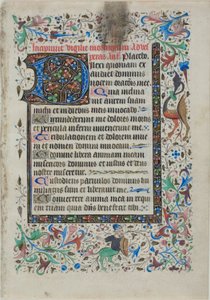 Incipiunt vigilie mortuorum
Placebo
Dilexi quoniam ex
audiet dominus
vocem
Quia inclina
vit aurem suam
michi et in diebus meis invocabo
Circumdederunt me dolores mortis
et pericula inferni invenerunt me
Tribulationem et dolorem inveni
et nomen domini invocavi
O domine libera animam meam mi
sericors dominus et iustus et deus
noster miseretur
Custodiens parvulos dominus hu
miliatus sum et liberavit me
Convertere anima mea in requi
em tuam quia dominus benefecit tibi